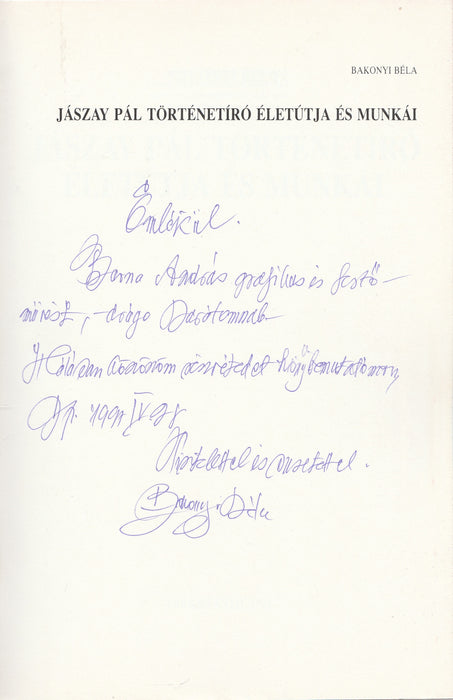 BAKONYI BÉLA
JÁSZAY PÁL TÖRTÉNETÍRÓ ÉLETÚTJA ÉS MUNKÁI
Emlékül.
Barna András grafikus és festő-
művész, - drága Barátomnak
Hálásan köszönöm részvételedet könyvbemutatómon
Bp. 1991 IV
Tisztelettel és szeretettel.
Bakonyi Béla